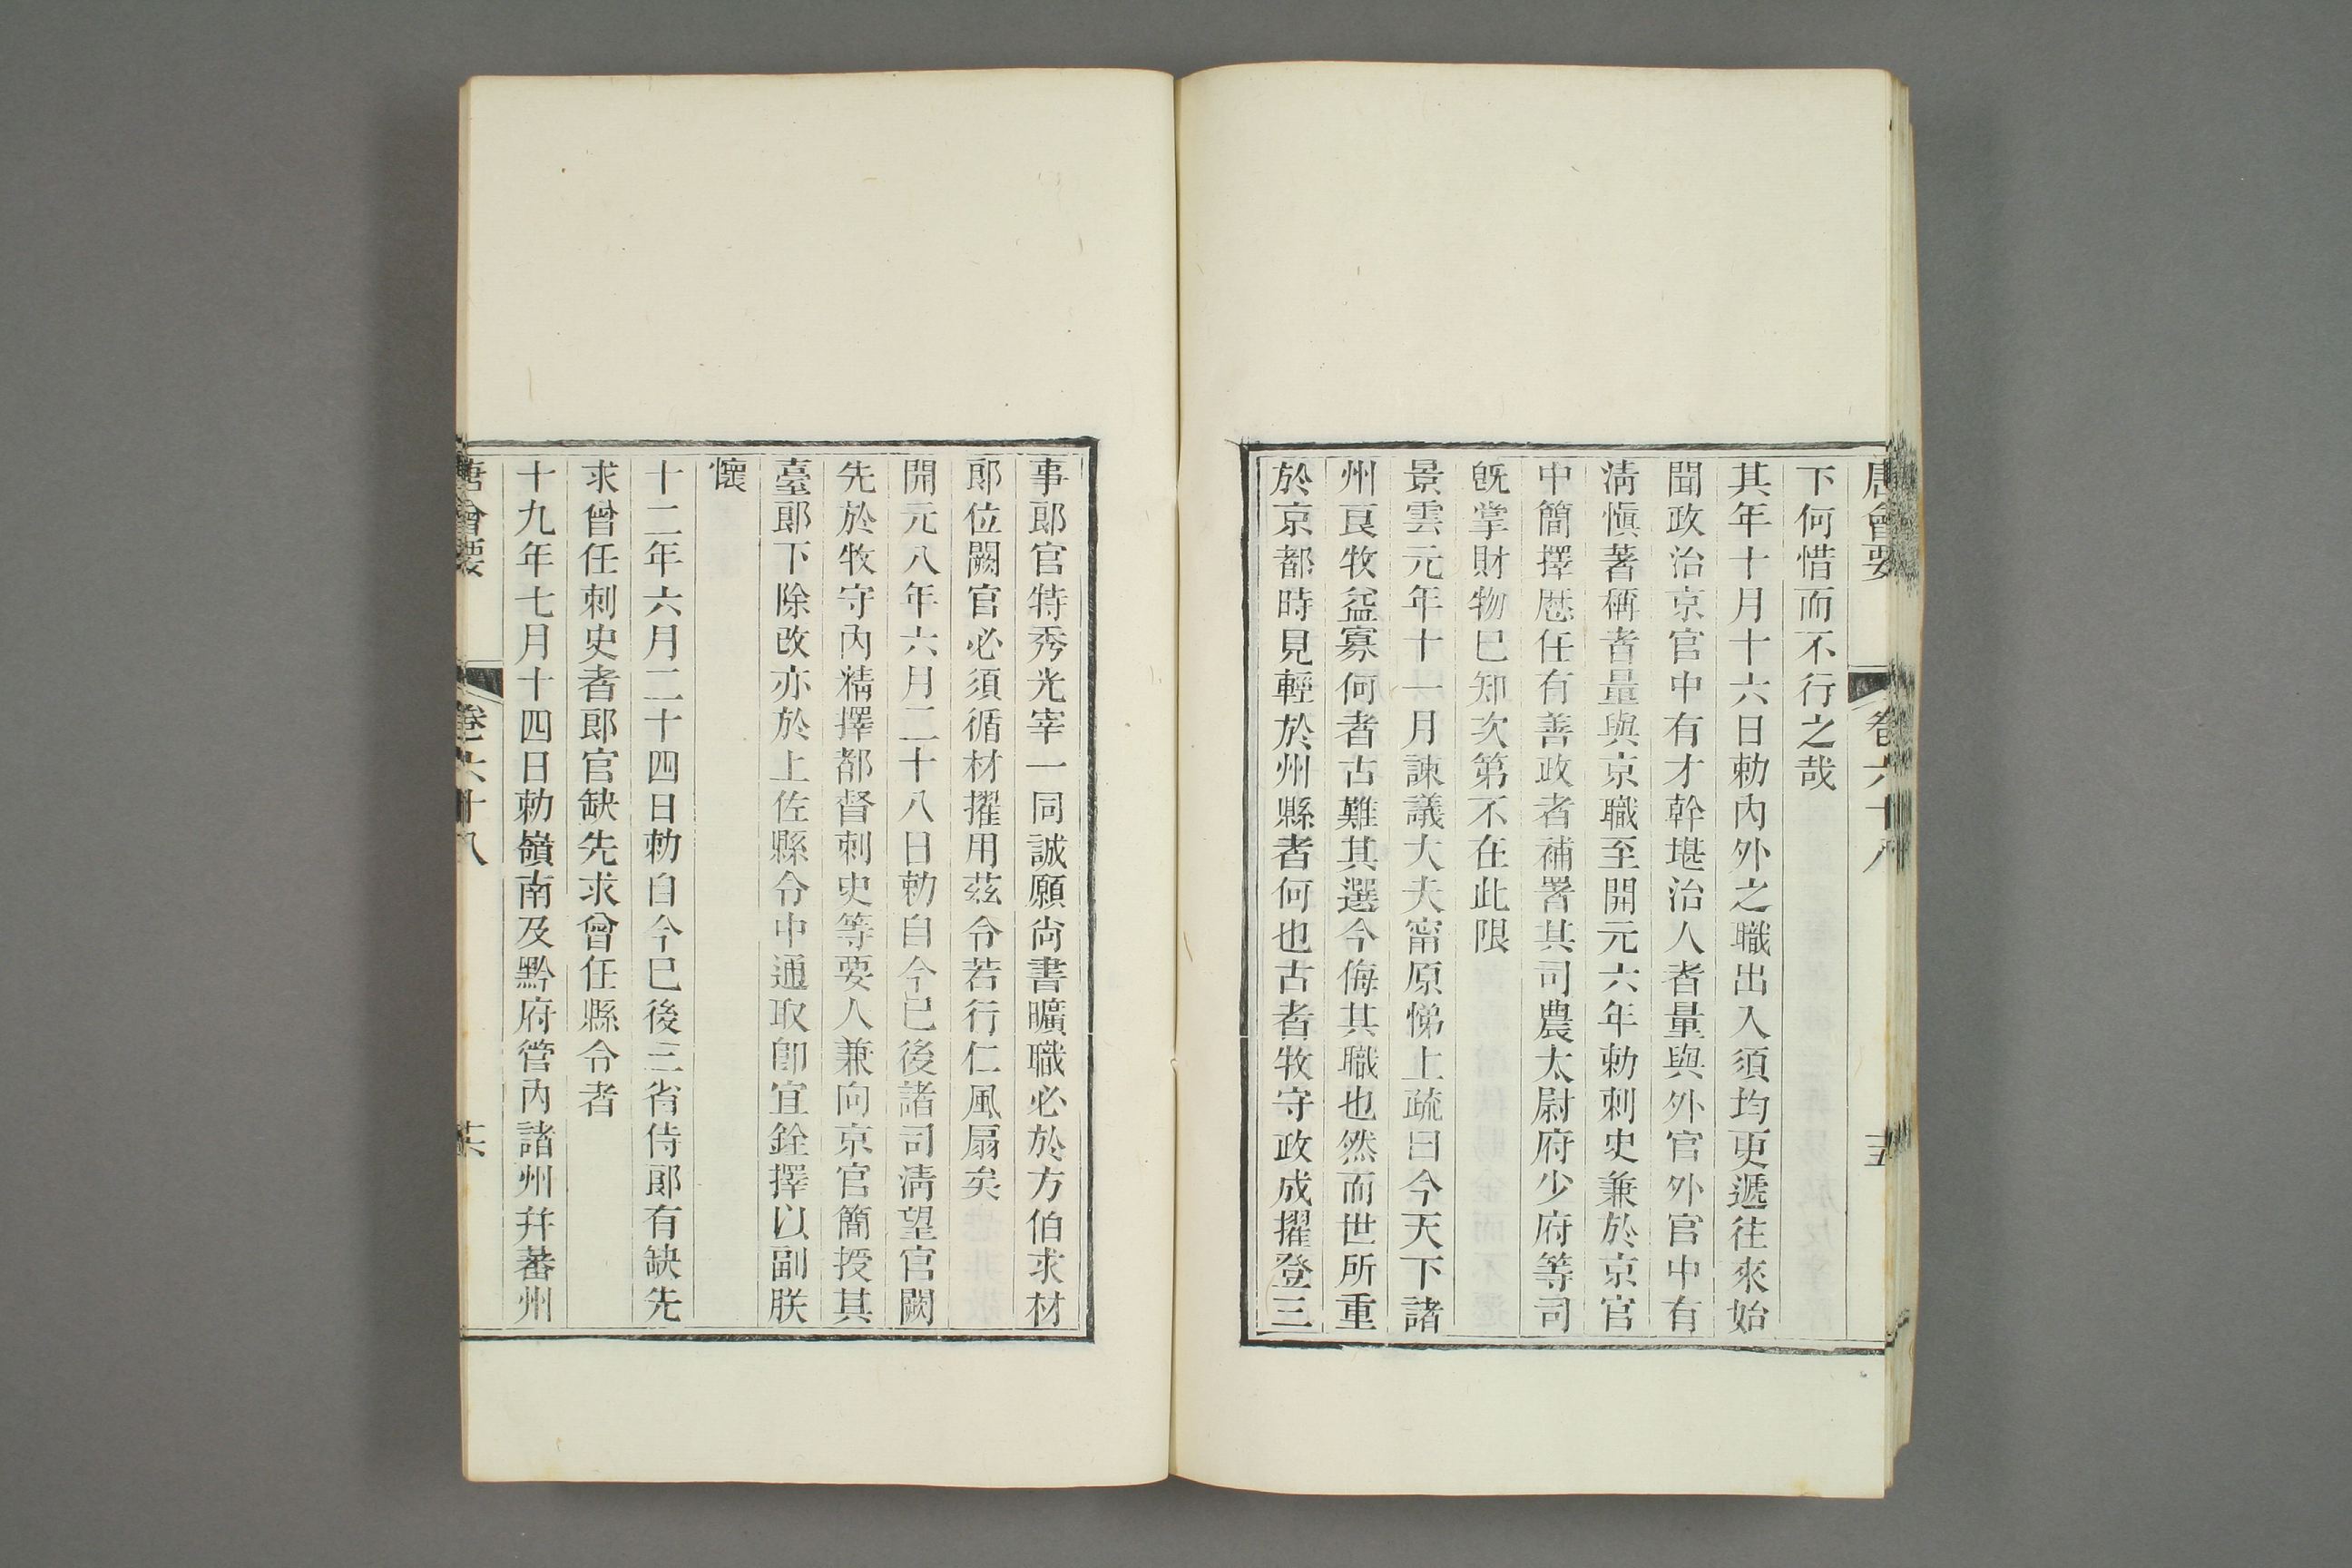 唐會要　卷六十八　十五
下何惜而不行之哉
其年十月十六日勅內外之職出入須均更遞往來始
聞政治京官中有才幹堪治人者量與外官外官中有
淸愼著稱者量與京職至開元六年勅刺史兼於京官
中簡擇歷任有善政者補署其司農太尉府少府等司
旣掌財物已知次第不在此限
景雲元年十一月諫議大夫甯原悌上疏曰今天下諸
州良牧益寡何者古難其選今侮其職也然而世所重
於京都時見輕於州縣者何也古者牧守政成擢登三
事郎官特秀光宰一同誠願尙書曠職必於方伯求材
郎位闕官必須循材擢用茲令若行仁風扇矣
開元八年六月二十八日勅自今已後諸司淸望官闕
先於牧守內精擇都督刺史等要人兼向京官簡授其
臺郎下除改亦於上佐縣令中通取卽宜銓擇以副朕
懷
十二年六月二十四日勅自今已後三省侍郎有缺先
求曾任刺史者郎官缺先求曾任縣令者
十九年七月十四日勅嶺南及黔府管內諸州幷蕃州
唐會要　卷六十八